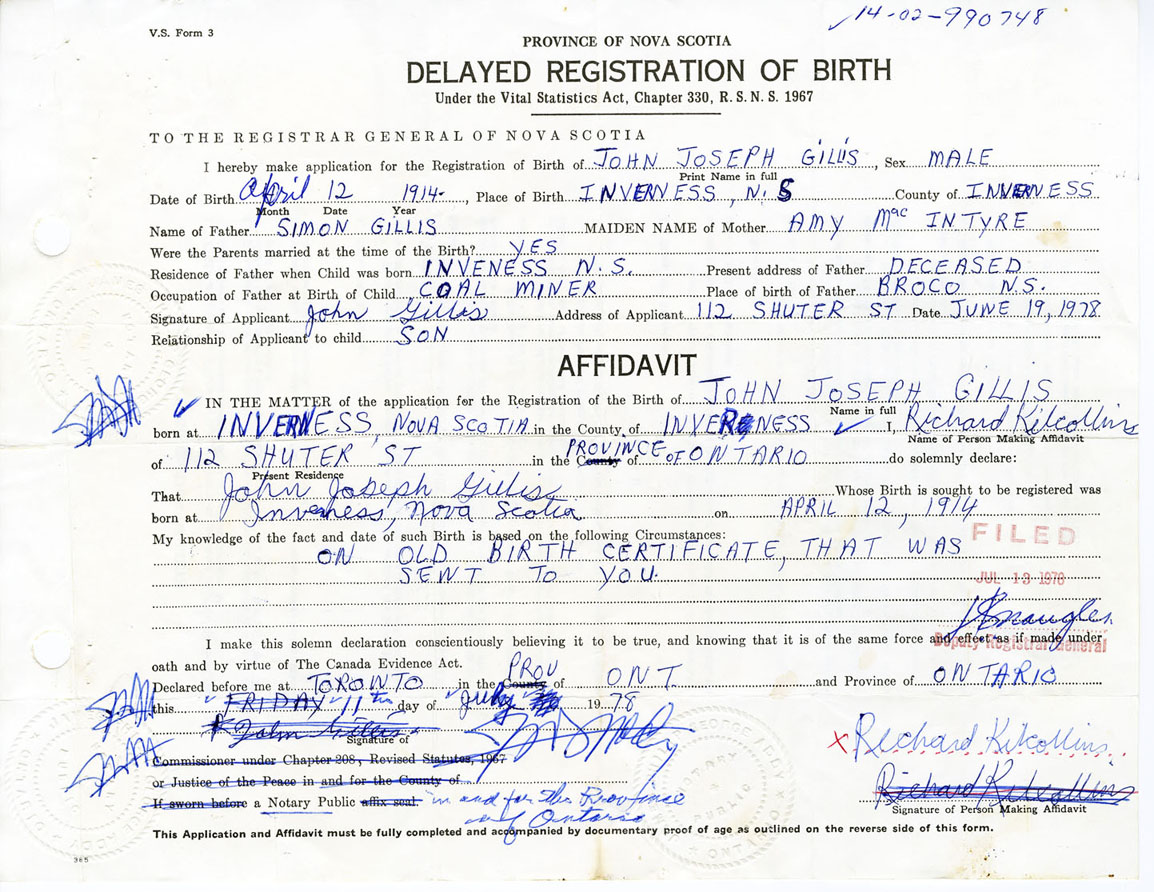 14-02-990748
V.S. Form 3
PROVINCE OF NOVA SCOTIA
DELAYED REGISTRATION OF BIRTH
Under the Vital Statistics Act, Chapter 330, R.S.N.S. 1967
TO THE REGISTRAR GENERAL OF NOVA SCOTIA
I hereby make application for the Registration of Birth of JOHN JOSEPH GILLIS, Sex MALE
Print Name in full
Date of Birth April 12 1914, Place of Birth INVERNESS, N.S County of INVERNESS
Month Date Year
Name of Father SIMON GILLIS MAIDEN NAME of Mother AMY Mac INTYRE
Were the Parents married at the time of the Birth? YES
Residence of Father when Child was born INVENESS N.S. Present address of Father DECEASED
Occupation of Father at Birth of Child COAL MINER Place of birth of Father BROCO N.S.
Signature of Applicant John Gillis Address of Applicant 112 SHUTER ST Date JUNE 19, 1978
Relationship of Applicant to child SON
AFFIDAVIT
IN THE MATTER of the application for the Registration of the Birth of JOHN JOSEPH GILLIS
Name in full
born at INVERNESS, NOVA SCOTIA in the County of INVERNESS I, Richard Kilcollins
Name of Person Making Affidavit
of 112 SHUTER ST in the County PROVINCE of OF ONTARIO do solemnly declare:
Present Residence
That John Joseph Gillis Whose Birth is sought to be registered was
born at Inverness, Nova Scotia on APRIL 12, 1914
My knowledge of the fact and date of such Birth is based on the following Circumstances:
ON OLD BIRTH CERTIFICATE, THAT WAS
SENT TO YOU.
FILED
JUL 13 1978
Deputy Registrar General
I make this solemn declaration conscientiously believing it to be true, and knowing that it is of the same force and effect as if made under
oath and by virtue of The Canada Evidence Act.
Declared before me at TORONTO in the County PROV of ONT and Province of ONTARIO
this FRIDAY 11th day of July 1978
John Gillis
Signature of
Richard Kilcollins
Commissioner under Chapter 208, Revised Statutes, 1967
or Justice of the Peace in and for the County of
If sworn before a Notary Public affix seal in and for the Province
of Ontario
Richard Kilcollins
Signature of Person Making Affidavit
This Application and Affidavit must be fully completed and accompanied by documentary proof of age as outlined on the reverse side of this form.
365